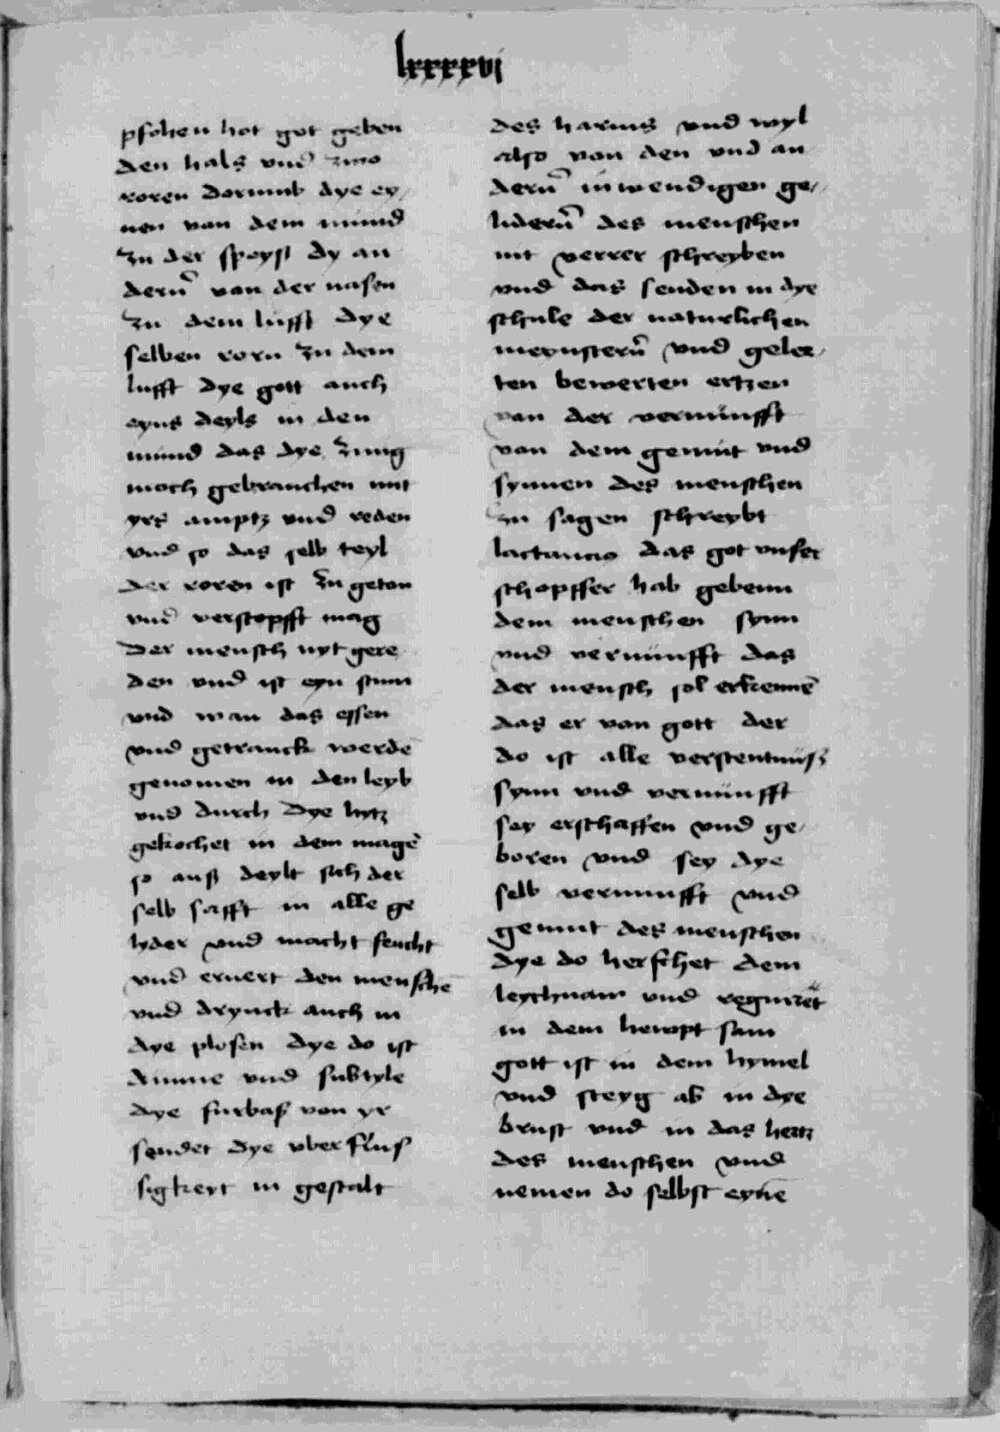 lxxxxvj
psohen hot got geben
den hals vnd zwo
roren dormit dye ey/
nen von dem mund
zu der speyst dy an
dern̄ von der nasen
zu dem lufft dye
selben rorn zu dem
lufft dye gott auch
eyns deyls in den
mund das dye zung
moch gebrauchen mit
yrs amptz vnd reden
vnd so das selb teyl
der roren ist zu geton
vnd verstopfft mag
der mensch nyt gere
den vnd ist eyn stum
vnd wan das essen
vnd getranck werdē
genomen in den leyb
vnd durch dye hytz
gekochet in dem magē
so auß deylt sich der
selb safft in alle ge
lyder vnd macht feucht
vnd ernert den menschē
vnd drynck auch in
dye plosen dye do ist
dunne vnd subtyle
dye furbaß von yr
sendet dye vberflus
sigkeyt in gestalt
des harns vnd wyl
also von den vnd an
dern̄ inwendigen ge/
lidern̄ des menschen
nit verrer schreyben
vnd das senden in dye
schule der naturlichen
meynstern̄ vnd geler/
ten bewerten ertzen
von der vernunfft
von dem gemut vnd
synnen des menschen
zu sagen schreybt
lactancio das got vnser
schopffer hab gebenn
dem menschen synn
vnd vernunfft das
der mensch sol erkennē
das er von gott der
do ist alle verstentnuß
synn vnd vernunfft
sey erschaffen vnd ge/
boren vnd sey dye
selb vernunfft vnd
gemut des menschen
dye do herschet dem
leychnam vnd regniret
in dem hewpt sam
gott ist in dem hymel
vnd steyg ab in dye
brust vnd in das hertz
des menschen vnd
nemen do selbst eynē